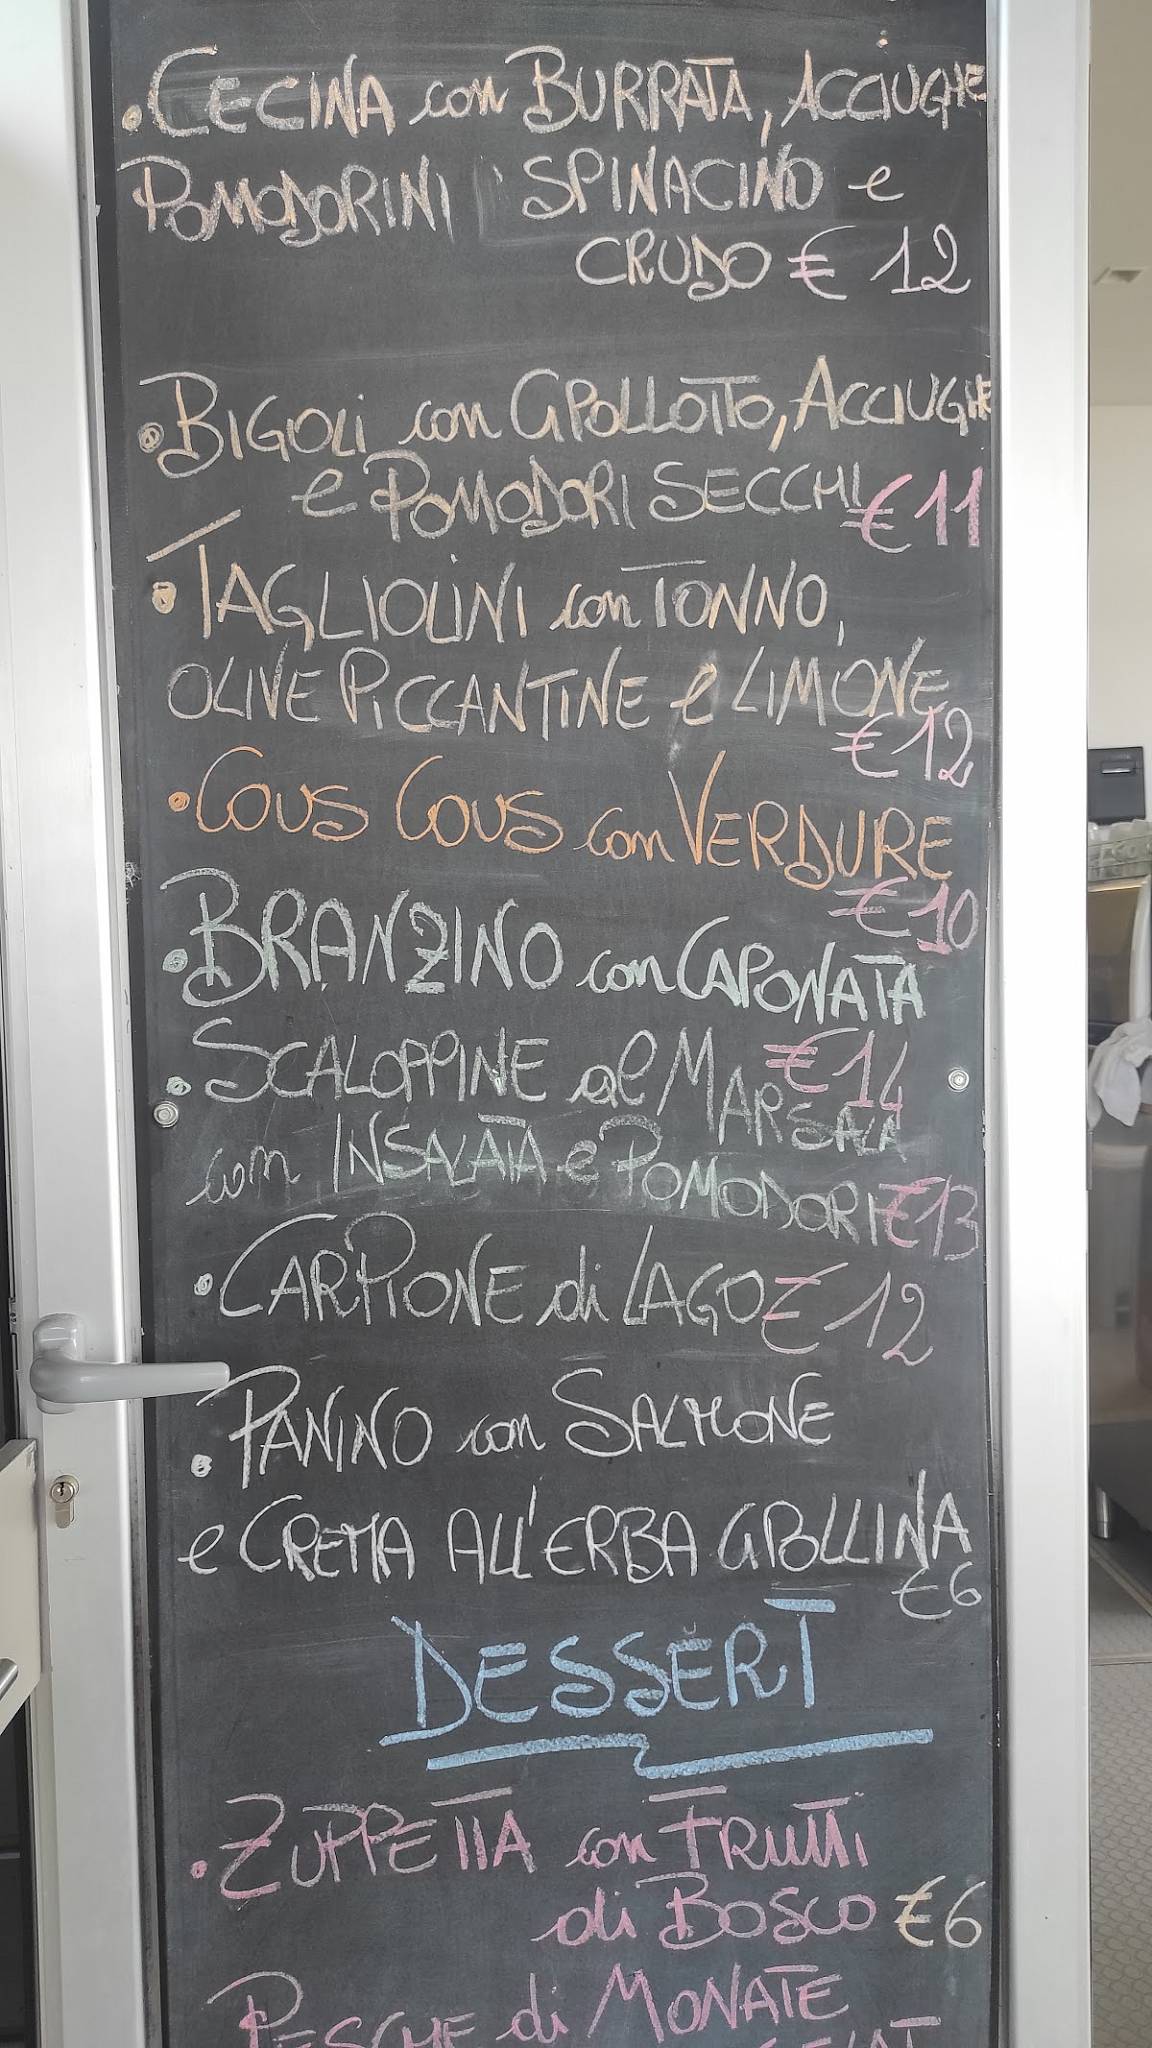 • CECINA con BURRATA, ACCIUGHE
POMODORINI SPINACINO e
CRUDO € 12
• BIGOLI con CIPOLLOTTO, ACCIUGHE
e POMODORI SECCHI € 11
• TAGLIOLINI con TONNO,
OLIVE PICCANTINE e LIMONE
€ 12
• COUS COUS con VERDURE
€ 10
• BRANZINO con CAPONATA
€ 14
• SCALOPPINE al MARSALA
con INSALATA e POMODORI € 13
• CARPIONE di LAGO € 12
• PANINO con SALMONE
e CREMA ALL'ERBA CIPOLLINA
€ 6
DESSERT
• ZUPPETTA con FRUTTI
di BOSCO € 6
PESCHE di MONATE